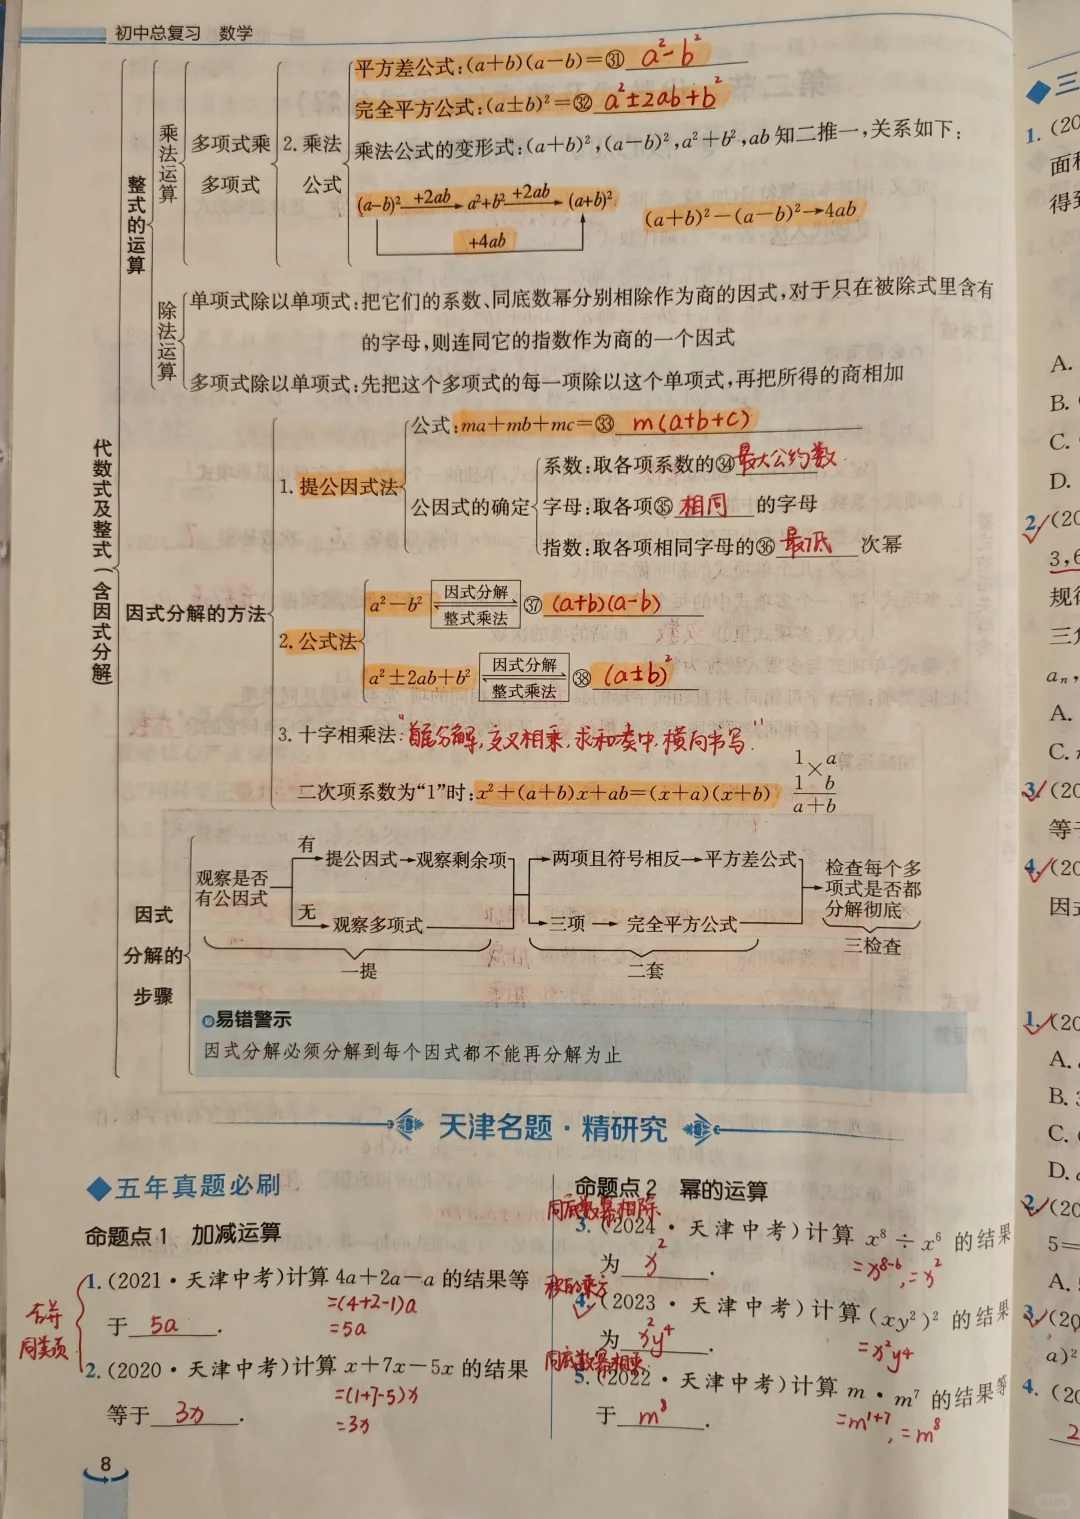 初中总复习 数学
平方差公式:(a+b)(a-b)=㉛ a²-b²
完全平方公式:(a±b)²=㉜ a²±2ab+b²
乘法公式的变形式:(a+b)²,(a-b)²,a²+b²,ab知二推一,关系如下:
(a-b)² +2ab a²+b² +2ab (a+b)²;
(a+b)²-(a-b)²→4ab
+4ab
整式的运算
乘法运算
多项式乘
多项式
2.乘法
公式
除法运算
单项式除以单项式:把它们的系数、同底数幂分别相除作为商的因式,对于只在被除式里含有
的字母,则连同它的指数作为商的一个因式
多项式除以单项式:先把这个多项式的每一项除以这个单项式,再把所得的商相加
代数式及整式(含因式分解)
因式分解的方法
1.提公因式法
公式:ma+mb+mc=㉝ m(a+b+c)
公因式的确定
系数:取各项系数的㉞最大公约数
字母:取各项㉟ 相同 的字母
指数:取各项相同字母的㊱ 最低 次幂
2.公式法
a²-b² 因式分解 整式乘法 ㊲ (a+b)(a-b)
a²±2ab+b² 因式分解 整式乘法 ㊳ (a±b)²
3.十字相乘法:"首尾分解,交叉相乘,求和凑中,横向书写"
二次项系数为“1”时:x²+(a+b)x+ab=(x+a)(x+b)
1 a
×
1 b
a+b
因式
分解的
步骤
观察是否
有公因式
有
提公因式→观察剩余项
无
观察多项式
两项且符号相反→平方差公式
三项→完全平方公式
检查每个多
项式是否都
分解彻底
一提
二套
三检查
易错警示
因式分解必须分解到每个因式都不能再分解为止
天津名题·精研究
五年真题必刷
命题点1 加减运算
合并
同类项
1.(2021·天津中考)计算4a+2a-a的结果等
=(4+2-1)a
于 5a .
=5a
2.(2020·天津中考)计算x+7x-5x的结果
=(1+7-5)x
等于 3x .
=3x
命题点2 幂的运算
同底数幂相除
3.(2024·天津中考)计算x⁸÷x⁶的结果
为 x² .
=x⁸⁻⁶,=x²
积的乘方
4.(2023·天津中考)计算(xy²)²的结果
为 x²y⁴ .
=x²y⁴
同底数幂相乘
5.(2022·天津中考)计算m·m⁷的结果等
于 m⁸ .
=m¹⁺⁷,=m⁸
8
三
1.(20
面积
得到
A.
B.
C.
D.
2.(20
3,6
规律
三角
aₙ,
A.
C.
3.(20
等于
4.(20
因式
1.(20
A.
B.
C.
D.
2.(20
5=
A.
3.(20
a)²
4.(20
2